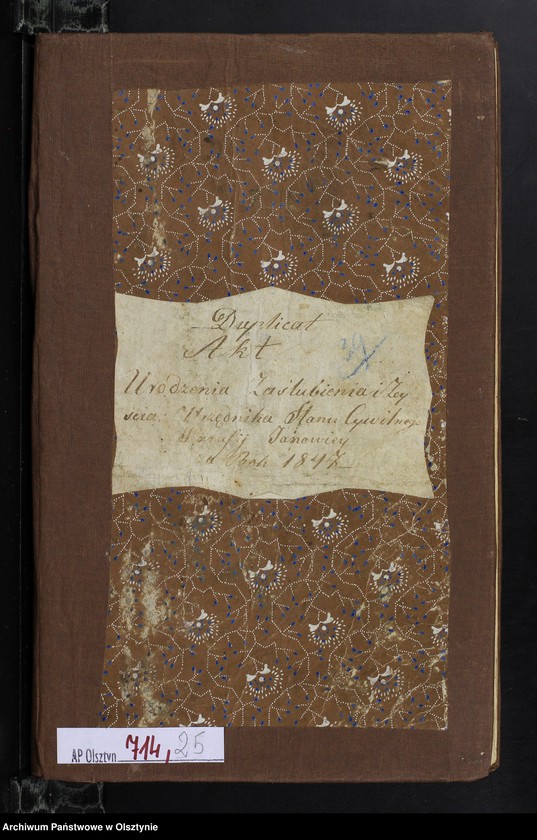 Duplicat
Akt
Urodzenia Zaślubienia i Zey
scia Urzędnika Stanu Cywilnego
Parafij Janowiey
za Rok 1847
AP Olsztyn 714, 25
Archiwum Państwowe w Olsztynie